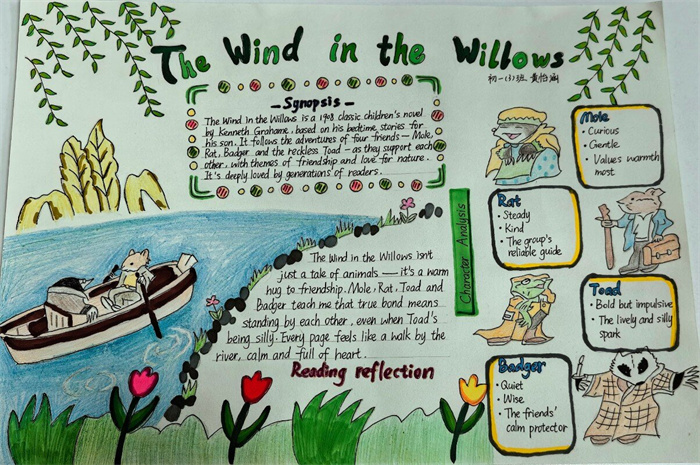 The Wind in the Willows
初一(3)班 黄怡涵
- Synopsis -
The Wind in the Willows is a 1908 classic children's novel
by Kenneth Grahame, based on his bedtime stories for
his son. It follows the adventures of four friends — Mole,
Rat, Badger and the reckless Toad — as they support each
other, with themes of friendship and love for nature.
It's deeply loved by generations of readers.
The Wind in the Willows isn't
just a tale of animals — it's a warm
hug to friendship. Mole, Rat, Toad and
Badger teach me that true bond means
standing by each other, even when Toad's
being silly. Every page feels like a walk by the
river, calm and full of heart.
Reading reflection
Character Analysis
Mole
• Curious
• Gentle
• Values warmth
most
Rat
• Steady
• Kind
• The group's
reliable guide
Toad
• Bold but impulsive
• The lively and silly
spark
Badger
• Quiet
• Wise
• The friends'
calm protector